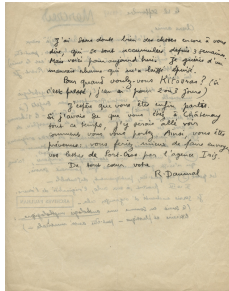 J'ai sans doute bien des choses encore à vous
dire, qui se sont accumulées depuis 3 semaines.
Mais voilà pour aujourd'hui. Je guéris d'un
mauvais rhume qui m'a laissé
Pour quand voulez-vous (si
c'est pressé, j'en ai pour 2 ou 3 jours)
J'espère que vous êtes enfin
Si j'avais su que vous étiez à
tout ce temps, j'y serais allé voir
comment vous vous portez. Ainsi, vous êtes
prévenus: vous feriez mieux de faire envoyer
vos lettres de Port-Cros par l'agence Iris.
De tout cœur votre
R. Daumal